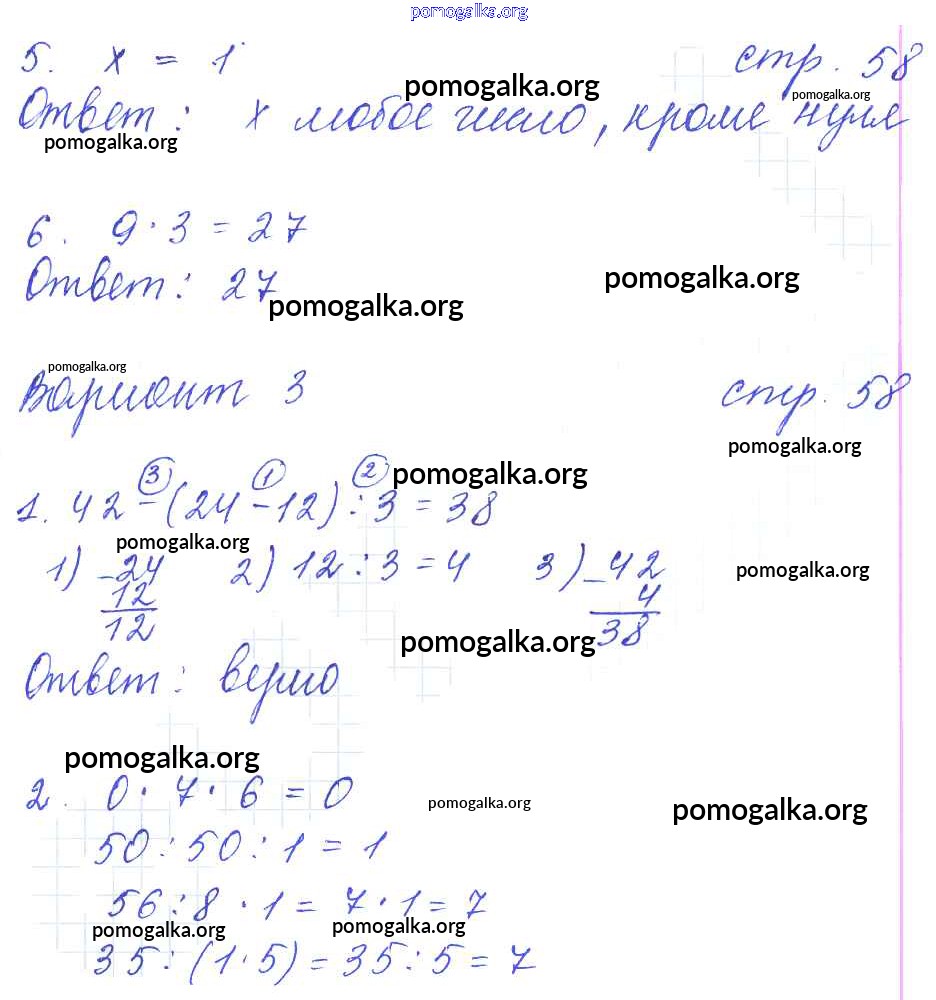 pomogalka.org
5. x = 1 стр. 58
pomogalka.org
pomogalka.org
Ответ: x любое число, кроме нуля
pomogalka.org
pomogalka.org
6. 9·3 = 27
Ответ: 27
pomogalka.org
pomogalka.org
pomogalka.org
Вариант 3 стр. 58
pomogalka.org
3 1 2
pomogalka.org
1. 42-(24-12):3=38
pomogalka.org
1) -24 2) 12:3=4 3) -42
pomogalka.org
12 4
12 38
pomogalka.org
Ответ: верно
pomogalka.org
2. 0·7·6=0
pomogalka.org
pomogalka.org
50:50:1=1
56:8·1=7·1=7
pomogalka.org
pomogalka.org
35:(1·5)=35:5=7